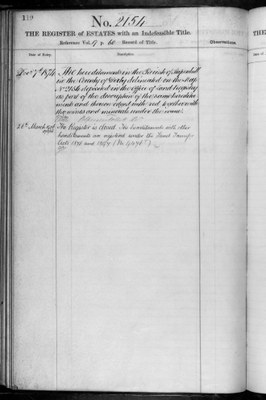 119
No. 2154
THE REGISTER of ESTATES with an Indefeasible Title.
Reference Vol. 17 p 60 Record of Title.
Observations
Date of Entry.
Description.
Decr 7th 1874
All hereditaments in the Parish of
in the County of Derby delineated in the Map
No 2154 deposited in the Office of Land Registry
as part of the description of the same heredita-
ments and thereon edged with red together with
the mines and minerals under the same.
The Register is closed. The hereditaments with other
hereditaments are registered under the Land Transfer
Acts 1875 and 1897